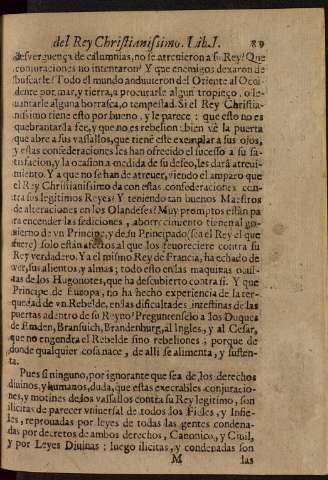 del Rey Christianissimo. Lib. I. 89
desverguença de calumnias, no se atreuieron a su Rey? Que
conjuraciones no intentaron? Y que enemigos dexaron de
buscarle? Todo el mundo anduuieron del Oriente al Occi-
dente por mar, y tierra, a procurarle algun tropieço, o le-
uantarle alguna borrasca, o tempestad. Si el Rey Christia-
nissimo tiene esto por bueno, y le parece: que esto no es
quebrantar la fee, y que no es rebelion: bien vè la puerta
que abre a sus vassallos, que tiene este exemplar a sus ojos,
y estas confederaciones les han ofrecido el sucesso a su sa-
tisfacion, y la ocasion a medida de su deseo, les darà atreui-
miento. Y a que no se han de atreuer, viendo el amparo que
el Rey Christianissimo da con estas confederaciones con-
tra sus legitimos Reyes? Y teniendo tan buenos Maestros
de alteraciones en los Olandeses? Muy promptos estàn pa
ra encender las sediciones, aborrecimiento tienen al go-
uierno de vn Principe, y de su Principado (sea el Rey el que
fuere) solo estàn afectos al que los fauoreciere contra su
Rey verdadero. Ya el mismo Rey de Francia, ha echado de
ver, sus alientos, y almas; todo esto en las maquinas ocul-
tas de los Hugonotes, que ha descubierto contra si. Y que
Principe de Europa, no ha hecho experiencia de la ter-
quedad de vn Rebelde, en las dificultades intestinas de las
puertas adentro de su Reyno? Preguntenselo a los Duques
de Emden, Bransuich, Brandenburg, al Ingles, y al Cesar,
que no engendra el Rebelde sino rebeliones; porque de
donde qualquier cosa nace, de alli se alimenta, y susten-
ta.
Pues si ninguno, por ignorante que sea de los derechos
diuinos, y humanos, duda, que estas execrables conjuracio-
nes, y motines de los vassallos contra su Rey legitimo, son
ilicitas de parecer vniuersal de todos los Fieles, y Infie-
les, reprouadas por leyes de todas las gentes condena-
das por decretos de ambos derechos, Canonico, y Ciuil,
y por Leyes Diuinas; luego ilicitas, y condenadas son
M las